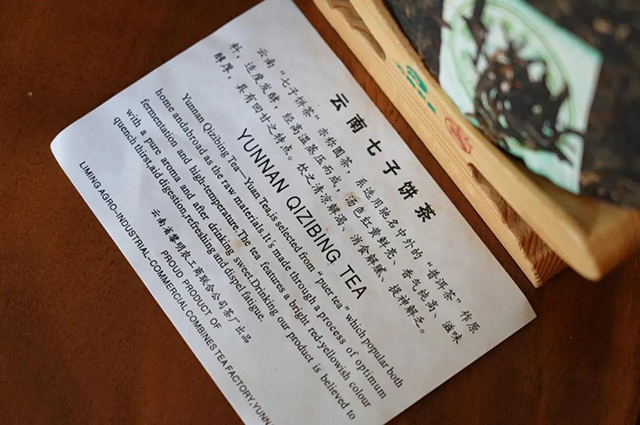 云南七子饼茶
云南“七子饼茶”亦称圆茶，系选用地名中外的“普洱茶”作原
料，适度发酵，经高温蒸压而成，汤色红黄鲜亮，香气纯高，滋味
醇厚，具有回甘之特点。饮之清凉解渴、消食解腻、提神解乏。
YUNNAN QIZIBING TEA
Yunnan Qizibing Tea—Yuan Tea,is selected from “puer tea” which popular both
home andabroad as the raw materials.it's made through a process of optimum
fermentation and high-temperature.The tea features a bright red-yellowish colour
with a pure aroma and after drinking sweet.Drinking our product is believed to
quench thirst,aid digestion,refreshing and dispel fatigue.
云南省黎明农工商联合公司茶厂出品
PROUD PRODUCT OF
LIMING AGRO-INDUSTRIAL-COMMERCIAL COMBINES TEA FACTORY,YUNN